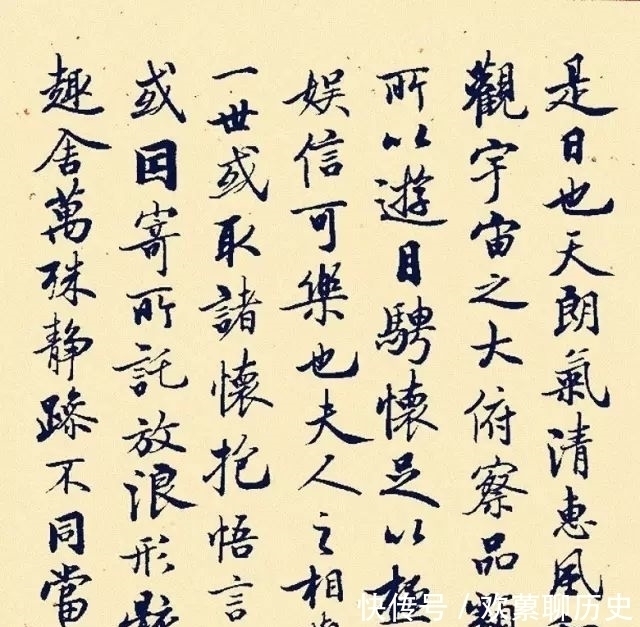 是日也天朗氣清惠風
觀宇宙之大俯察品類
所以遊目騁懷足以極
娛信可樂也夫人之相
一世或取諸懷抱悟言
或因寄所託放浪形骸
趣舍萬殊静躁不同當
快传号/欢蒙聊历史